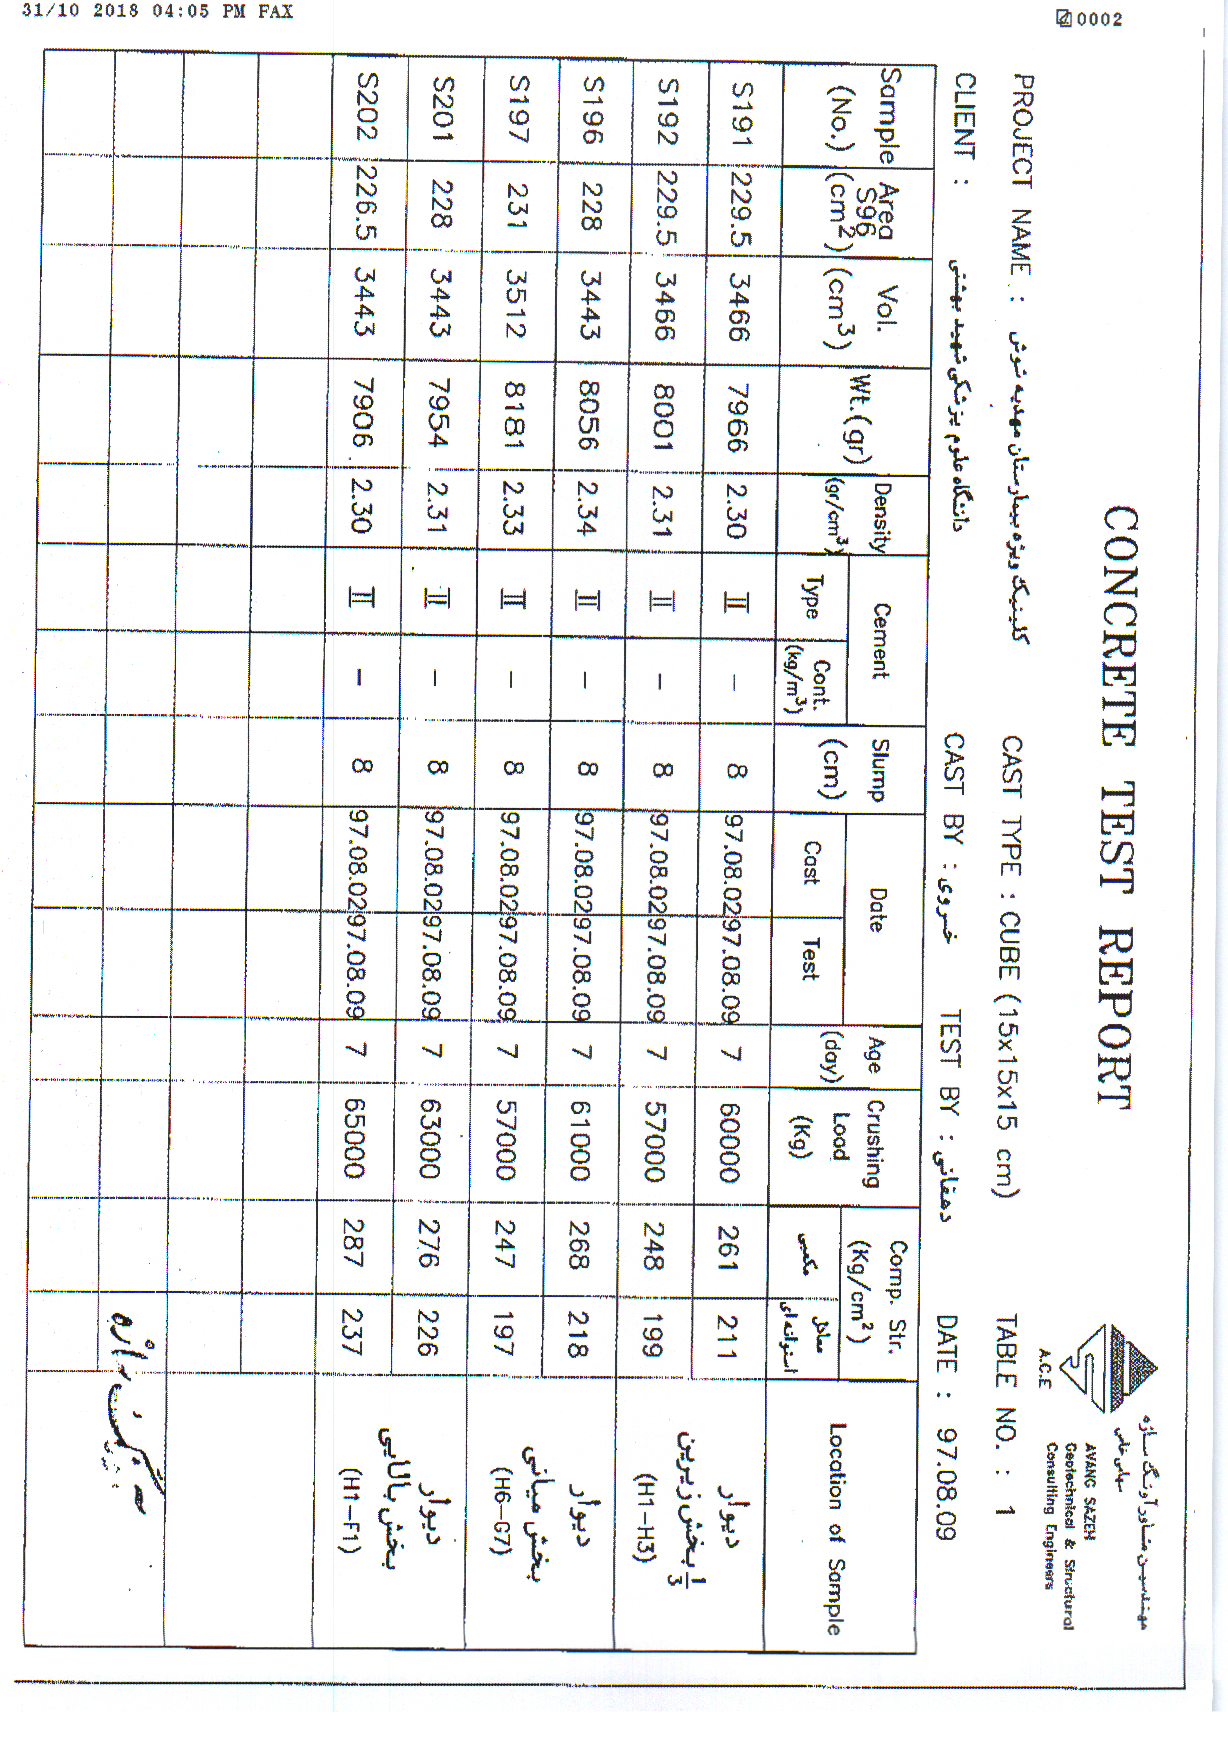 31/10 2018 04:05 PM FAX 0002
CONCRETE TEST REPORT
مهندسین مشاور آونگ سازه
سهامی خاص
AVANG SAZEH
Geotechnical & Structural
Consulting Engineers
A.C.E
PROJECT NAME : کلینیک ویژه بیمارستان مهدیه شوش CAST TYPE : CUBE (15x15x15 cm) TABLE NO. : 1
CLIENT : دانشگاه علوم پزشکی شهید بهشتی CAST BY : خسروی TEST BY : دهقانی DATE : 97.08.09
Sample (No.) Area S96 (cm2) Vol. (cm3) Wt.(gr) Density (gr/cm3) Cement Type Cont. (kg/m3) Slump (cm) Date Cast Test Age (day) Crushing Load (Kg) Comp. Str. (Kg/cm2) مکعبی معادل استوانه ای Location of Sample
S191 229.5 3466 7966 2.30 II – 8 97.08.02 97.08.09 7 60000 261 211 دیوار
S192 229.5 3466 8001 2.31 II – 8 97.08.02 97.08.09 7 57000 248 199 1/3 بخش زیرین (H1–H3)
S196 228 3443 8056 2.34 II – 8 97.08.02 97.08.09 7 61000 268 218 دیوار
S197 231 3512 8181 2.33 II – 8 97.08.02 97.08.09 7 57000 247 197 بخش میانی (H6–G7)
S201 228 3443 7954 2.31 II – 8 97.08.02 97.08.09 7 63000 276 226 دیوار
S202 226.5 3443 7906 2.30 II – 8 97.08.02 97.08.09 7 65000 287 237 بخش بالایی (H1–F1)